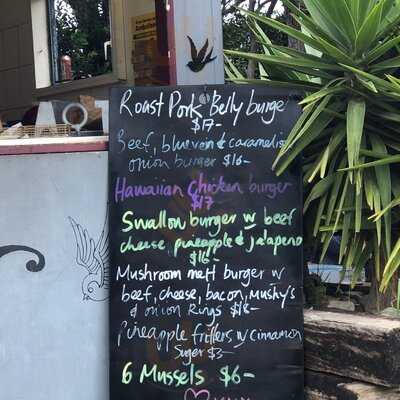 Roast Pork Belly burge
$17-
Beef, bluevein & caramelis
onion burger $16-
Hawaiian Chicken burger
$17
Swallow burger w beef
cheese, pineapple & jalapeno
Mushroom melt burger w
beef, cheese, bacon, Mushy's
& onion Rings
Pineapple fritters w Cinnamon
Suger $3-
6 Mussels $6-